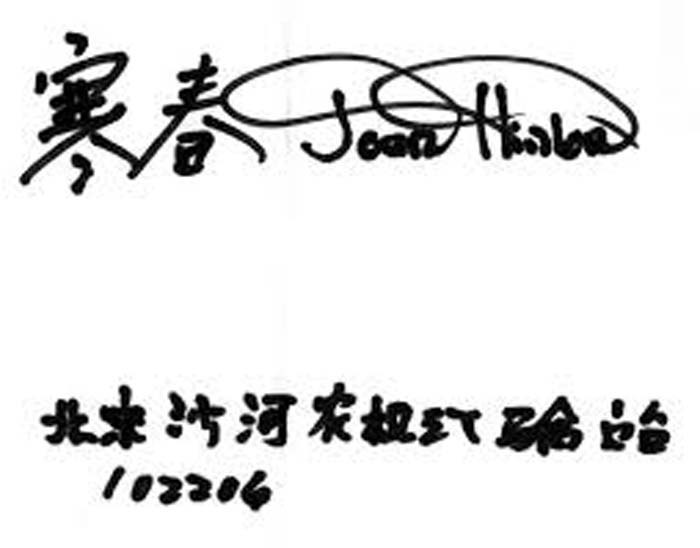 寒春 Joan Hinton
北京沙河农机试验站
102206